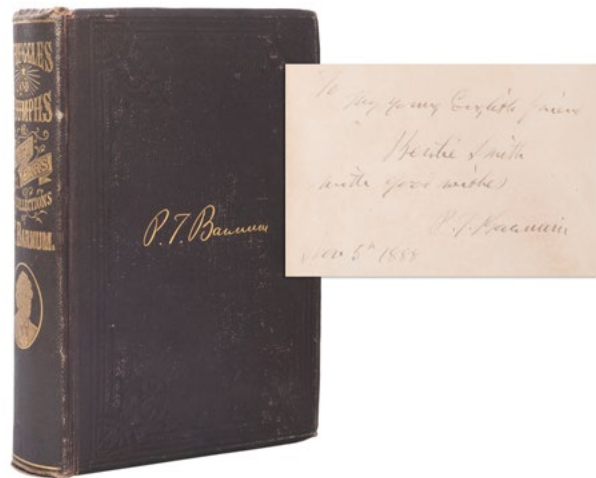 UGGLES
AND
UMPHS
YEARS'
COLLECTIONS
OF
BARNUM.
P. T. Barnum
To
my young English friend
Bertie Smith
with good wishes
P. T. Barnum
Nov 5th 1889